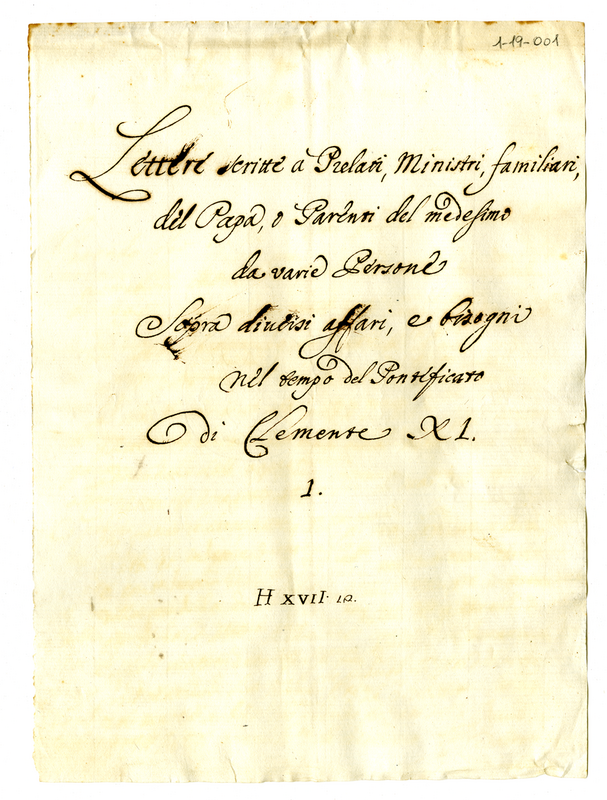 1-19-001
Lettere scritte à Prelati, Ministri, familiari,
del Papa, o Parenti del medesimo
da varie Persone
Sopra diuersi affari, e bisogni
nel tempo del Pontificato
di Clemente XI.
1.
H XVII.